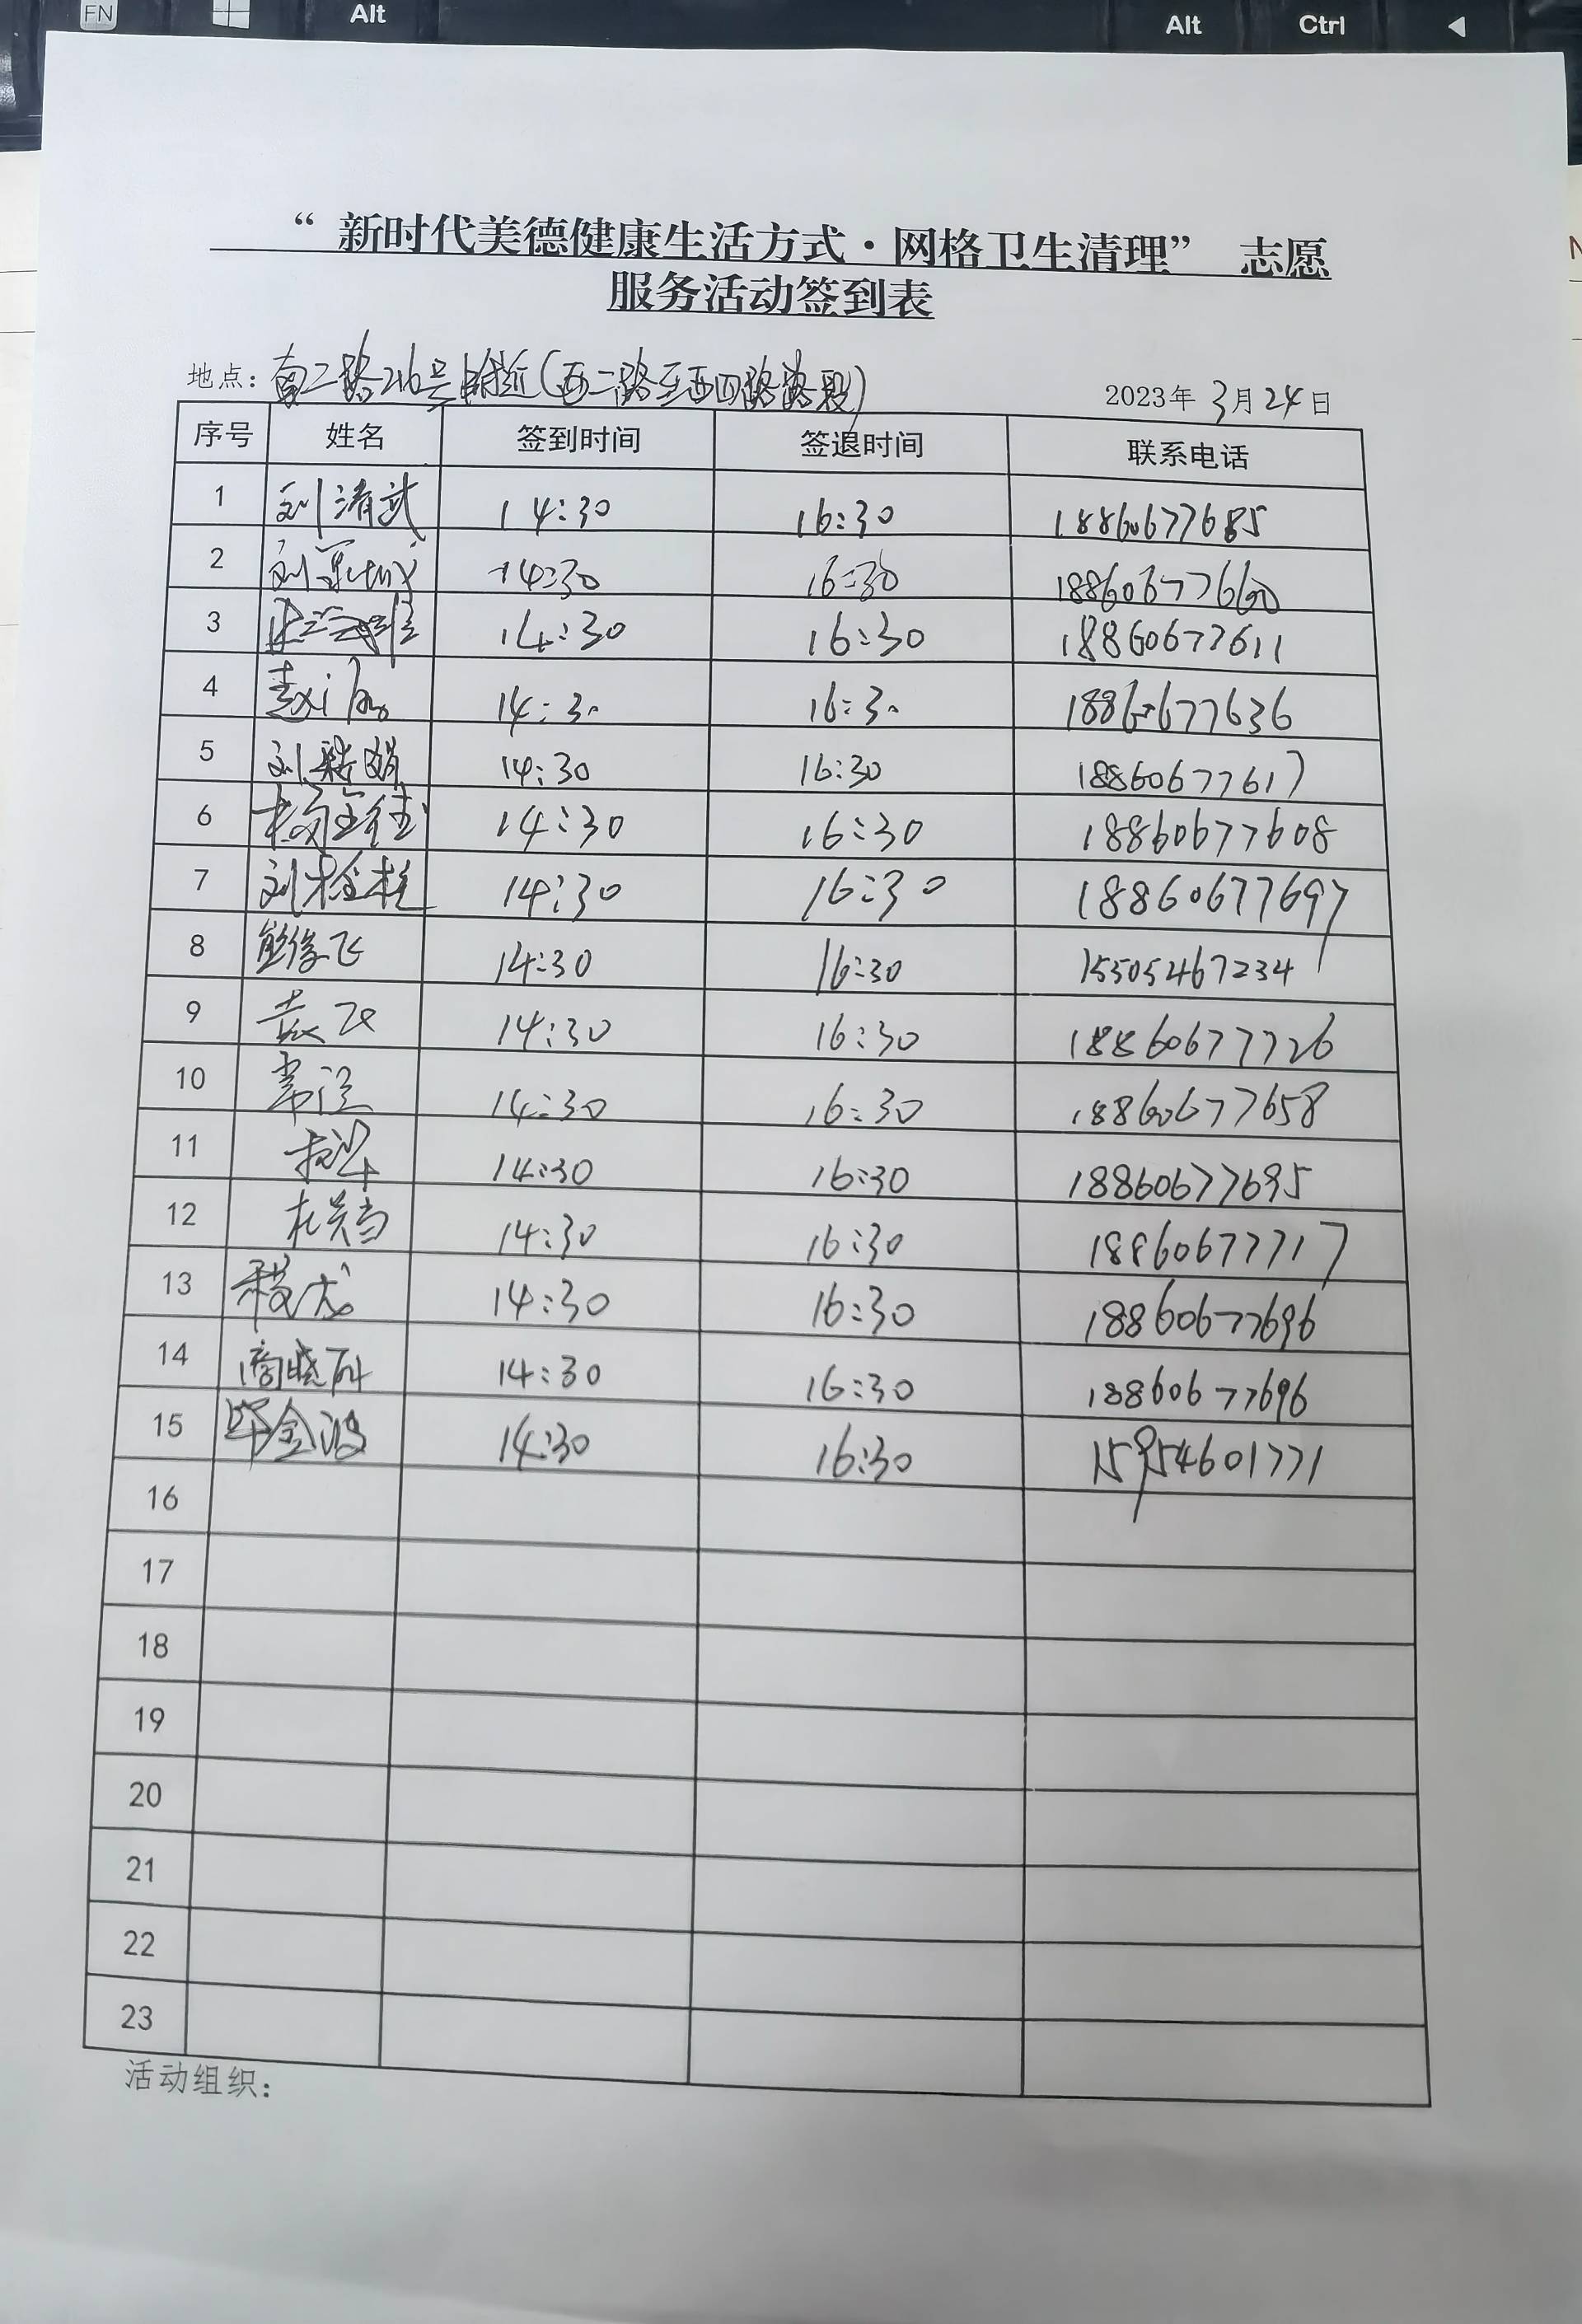 FN Alt Alt Ctrl
“新时代美德健康生活方式·网格卫生清理” 志愿
服务活动签到表
地点：南二路216号附近(西二路至西四路路段)
2023年3月24日
序号 姓名 签到时间 签退时间 联系电话
1 刘清武 14:30 16:30 18860677685
2 14:30 16:30 18860677660
3 14:30 16:30 18860677611
4 14:30 16:30 18860677636
5 14:30 16:30 18860677617
6 14:30 16:30 18860677608
7 刘栓柱 14:30 16:30 18860677697
8 熊俊飞 14:30 16:30 15505467234
9 袁飞 14:30 16:30 18860677726
10 14:30 16:30 18860677658
11 14:30 16:30 18860677695
12 14:30 16:30 18860677717
13 程龙 14:30 16:30 18860677696
14 商晓研 14:30 16:30 18860677696
15 毕金波 14:30 16:30 15954601771
16
17
18
19
20
21
22
23
活动组织：